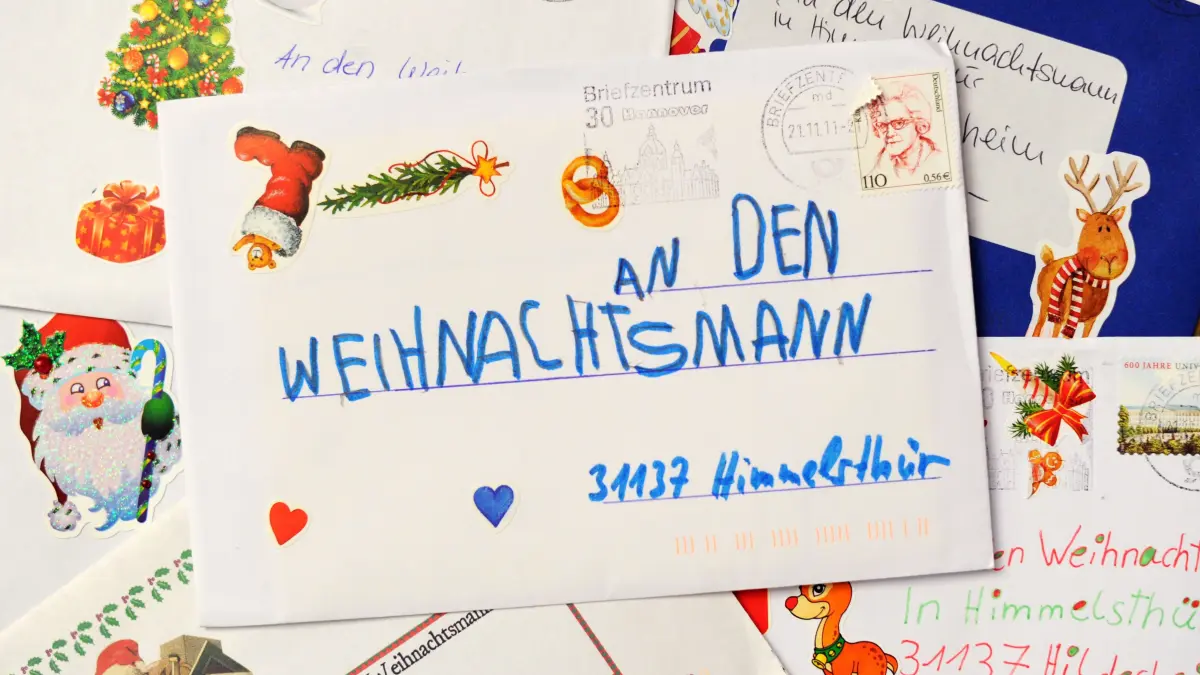 An den
An den Weihnachtsmann
in
Briefzentrum
30 Hannover
BRIEFZENTR
md
21.11.11-2
Deutschland
110
0,56€
AN DEN
WEIHNACHTSMANN
31137 Himmelsthür
600 JAHRE UNIV
Briefzentrum
en Weihnacht
In Himmelsthü
31137 Hildeshei
Weihnachtsmann